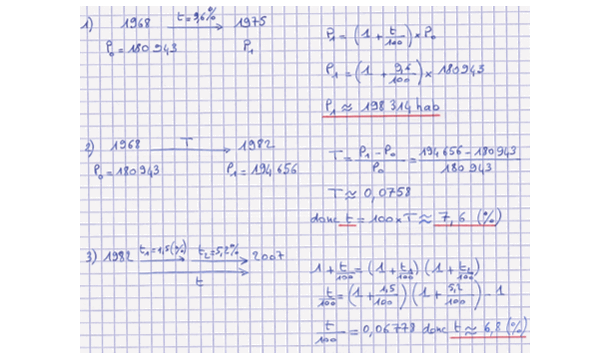 1) 1968 t=9,6% 1975
P₀=180943 P₁
P₁=(1+t/100)×P₀
P₁=(1+9,6/100)×180943
P₁≈198314 hab
2) 1968 T 1982
P₀=180943 P₁=194656
T=(P₁-P₀)/P₀=(194656-180943)/180943
T≈0,0758
donc t=100×T≈7,6 (%)
3) 1982 t₁=1,5(%) t₂=5,2% 2007
t
1+t/100=(1+t₁/100)(1+t₂/100)
t/100=(1+1,5/100)(1+5,2/100)-1
t/100=0,06778 donc t≈6,8(%)